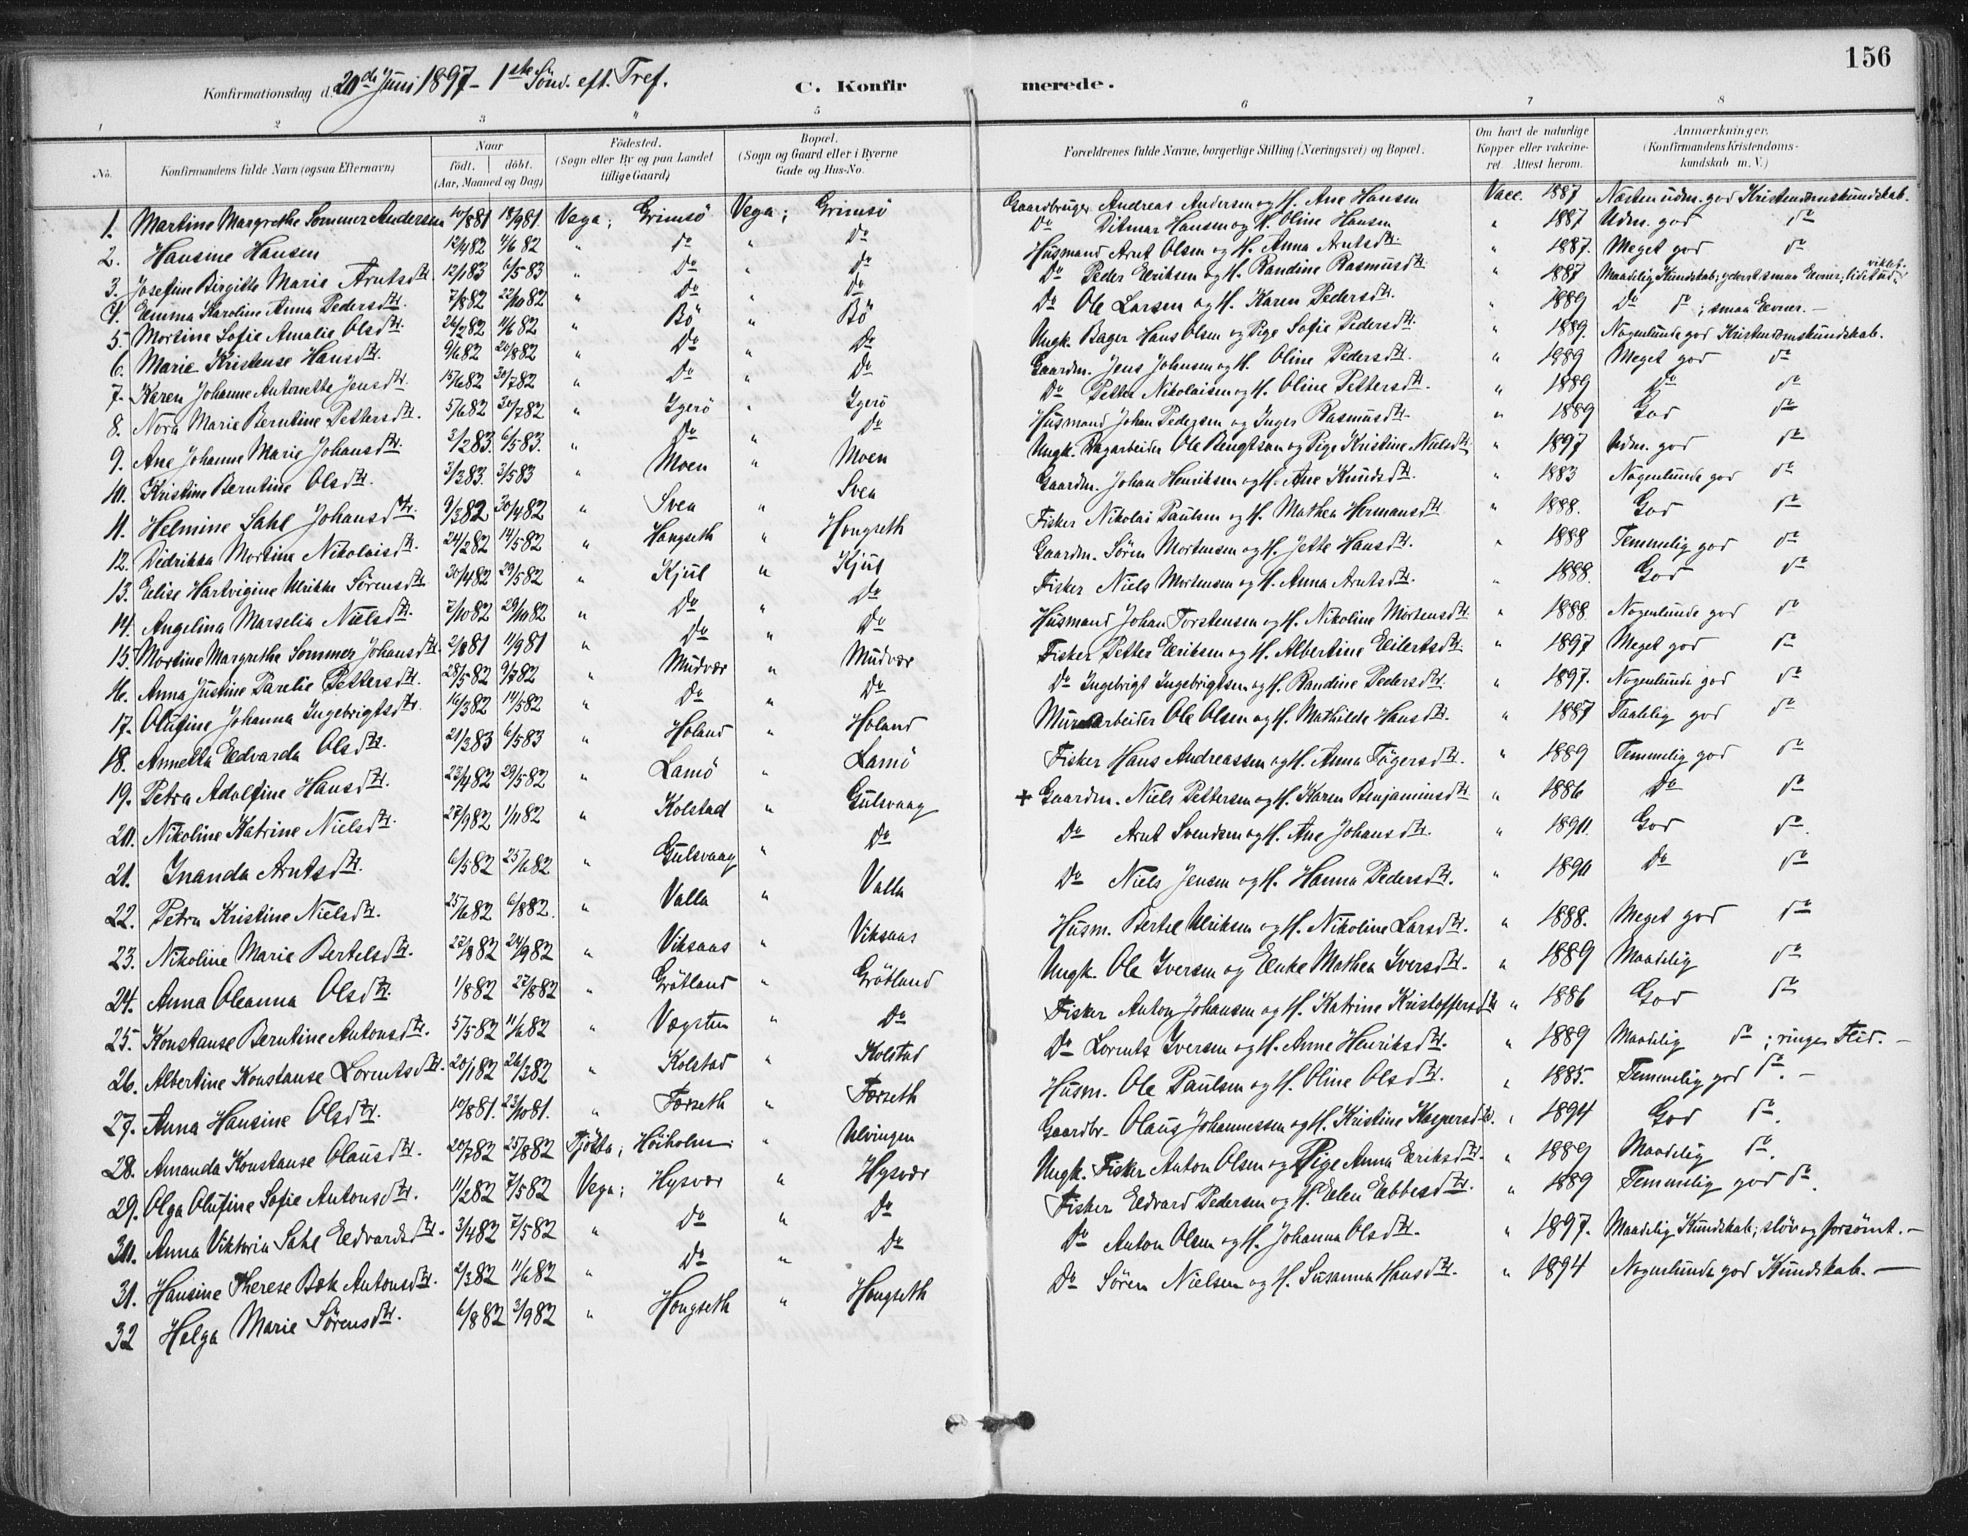 156
Konfirmationsdag d. 20de Juni 1897 - 1ste Sönd. eft. Tref. C. Konfirmerede.
1 2 3 4 5 6 7 8
No. Konfirmandens fulde Navn (ogsaa Efternavn) Naar født. døbt. (Aar, Maaned og Dag) Fødested. (Sogn eller By og paa Landet tillige Gaard) Bopæl. (Sogn og Gaard eller i Byerne Gade og Hus-No. Forældrenes fulde Navne, borgerlige Stilling (Næringsvei) og Bopæl. Om havt de naturlige Kopper eller vakcineret. Attest herom. Anmærkninger. (Konfirmandens Kristendomskundskab m. V.)
1. Martine Margrethe Sommer Andersen 10/881 18/981 Vega; Grimsö Vega; Grimsö Gaardbruger Andreas Andersen og H. Ane Hansen Vacc. 1887 Næsten udm. god Kristendomskundskab.
2. Hansine Hansen 12/482 4/682 " Do " Do Do Ditmar Hansen og H. Oline Hansen " 1887 Udm. god do
3. Josefine Birgitte Marie Arntsdtr. 12/183 6/583 " Do " Do Husmand Arnt Olsen og H. Anna Arntsdtr. " 1887. Meget god do
4. Emma Karoline Anna Pedersdtr. 7/882 22/1082 " Do " Do Do Peder Eriksen og H. Randine Rasmusdtr. " 1887 Maadelig Kundskab; yderst smaa Evner; lidet udviklet.
5. Mortine Sofie Amalie Olsdtr. 24/282 4/682 " Bö " Bö Do Ole Larsen og H. Karen Pedersdtr. " 1889 Do do; smaa Evner. -
6. Marie Kristense Hansdtr. 9/682 20/882 " Do " Do Ungk. Bager Hans Olsen og Pige Sofie Pedersdtr. " 1889. Nogenlunde god Kristendomskundskab.
7. Karen Johanne Antonette Jensdtr. 15/682 30/782 " Do " Do Gaardm. Jens Johansen og H. Oline Pedersdtr. " 1889 Meget god do
8. Nora Marie Berntine Pettersdtr. 5/682 30/782 " Igerö " Igerö Do Petter Nikolaisen og H. Oline Pettersdtr. " 1889 Do do
9. Ane Johanne Marie Johansdtr. 3/283. 6/583. " Do " Do Husmand Johan Pedersen og Inger Rasmusdtr. " 1889 God do
10. Kristine Berntine Olsdtr. 3/383. 3/583 " Moen " Moen Ungk. Dagarbeider Ole Bengtsen og Pige Kristine Nielsdtr " 1897 Udm. god do
11. Helmine Sahl Johansdtr. 9/382 30/482 " Sven " Sven Gaardm. Johan Henriksen og H. Ane Knudsdtr. " 1883 Nogenlunde god do
12. Didrikka Mortine Nikolaisdtr. 24/282 14/582 " Hongseth " Hongseth Fisker Nikolai Paulsen og H. Mathea Hermansdtr " 1888. God do
13. Elise Hartvigine Ulrikke Sörensdtr 30/482 29/582 " Kjul " Kjul Gaardm. Sören Mortensen og H. Jette Hansdtr. " 1888 Temmelig god do
14. Angelina Marselia Nielsdtr. 7/1082 29/1082 " Do " Do Fisker Niels Mortensen og H. Anna Arntsdtr. " 1888. God do
15. Mortine Margrethe Sommer Johansdtr. 2/881 11/981 " Do " Do Husmand Johan Torstensen og H. Nikoline Mortensdtr " 1888. Nogenlunde god do
16. Anna Justine Parelie Pettersdtr. 28/582 9/782 " Mudvær " Mudvær Fisker Petter Eriksen og H. Albertine Eilertsdtr. " 1897 Meget god do
17. Olufine Johanna Ingebrigtsdtr. 16/382 14/582 " Do " Do Do Ingebrigt Ingebrigtsen og H. Randine Pedersdtr. " 1897. Nogenlunde god do
18. Annetta Edvarda Olsdtr. 21/383 6/583 " Holand " Holand Murarbeider Ole Olsen og H. Mathilde Hansdtr. " 1887 Taalelig god do
19. Petra Adolfine Hansdtr. 23/482 29/582 " Lamö " Lamö Fisker Hans Andreassen og H. Anna Tögersdtr. " 1889 Temmelig god do
20. Nikoline Katrine Nielsdtr. 27/982 " Kolstad " Gulsvaag + Gaardm. Niels Pettersen og H. Karen Benjaminsdtr " 1886 Do do
21. Inanda Arntsdtr. 6/582 25/682 " Gulsvaag " Do Do Arnt Svendsen og H. Ane Johansdtr. " 1890. God do.
22. Petra Kristine Nielsdtr. 25/682 6/882. " Valla " Valla Do Niels Jensen og H. Hanna Pedersdtr. " 1890 Do do
23. Nikoline Marie Bertelsdtr. 22/882 24/982 " Viksaas " Viksaas Husm. Bertel Ulriksen og H. Nikoline Larsdtr. " 1888. Meget god do
24. Anna Oleanna Olsdtr. 1/882 27/882 " Grötland " Grötland Ungk. Ole Iversen og Enke Mathea Iversdtr. " 1889 Maadelig do
25. Konstanse Berntine Antonsdtr. 5/582 11/682 " Vægsten " Do Fisker Anton Johansen og H. Katrine Kristoffersdtr " 1886 God do
26. Albertine Konstanse Lorentsdtr. 20/182 26/382 " Kolstad " Kolstad Do Lorents Iversen og H. Anne Henriksdtr. " 1889 Maadelig do; ringe Flid. -
27. Anna Hansine Olsdtr. 10/881. 23/1081. " Færseth " Færseth Husm. Ole Paulsen og H. Oline Olsdtr. " 1885. Temmelig god do. -
28. Amanda Konstanse Olausdtr. 20/782 25/882 Tjötta; Höiholm " Ulvingen Gaardbr. Olaus Johannessen og H. Kristine Kaspersdtr. " 1894 God do.
29. Olga Olufine Sofie Antonsdtr. 11/282 7/582 Vega; Hysvær " Hysvær Ungk. Fisker Anton Olsen og Pige Anna Eriksdtr. " 1889 Maadelig do.
30. Anna Viktoria Sahl Edvardsdtr. 3/482 7/582 " Do " Do Fisker Edvard Pedersen og H. Elen Ebbesdtr. " 1889 Temmelig god do.
31. Hansine Therese Bæk Antonsdtr. 2/382 11/682 " Do " Do Do Anton Olsen og H. Johanna Olsdtr. " 1897. Maadelig Kundskab; slöv og forsömt. -
32 Helga Marie Sörensdtr. 6/882 3/982 " Hongseth " Hongseth Do Sören Nielsen og H. Susanna Hansdtr. " 1894 Nogenlunde god Kundskab. -